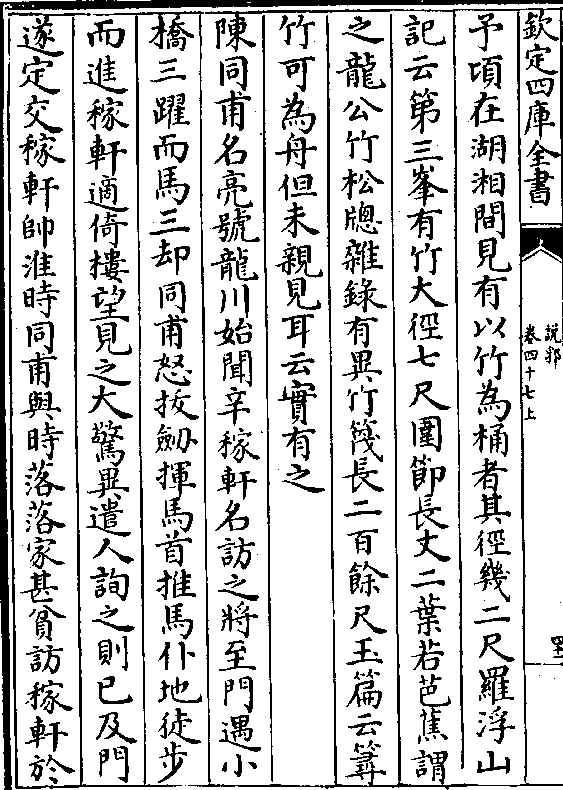 欽定四庫全書
說郛
卷四十七上
予頃在湖湘間見有以竹為桶者其徑幾二尺羅浮山
記云第三峯有竹大徑七尺圍節長丈二葉若芭蕉謂
之龍公竹松牕雜錄有異竹篾長二百餘尺玉篇云䉣
竹可為舟但未親見耳云實有之
陳同甫名亮號龍川始聞辛稼軒名訪之將至門遇小
橋三躍而馬三却同甫怒拔劍揮馬首推馬仆地徒步
而進稼軒適倚摟望見之大驚異遣人詢之則已及門
遂定交稼軒帥淮時同甫與時落落家甚貧訪稼軒於